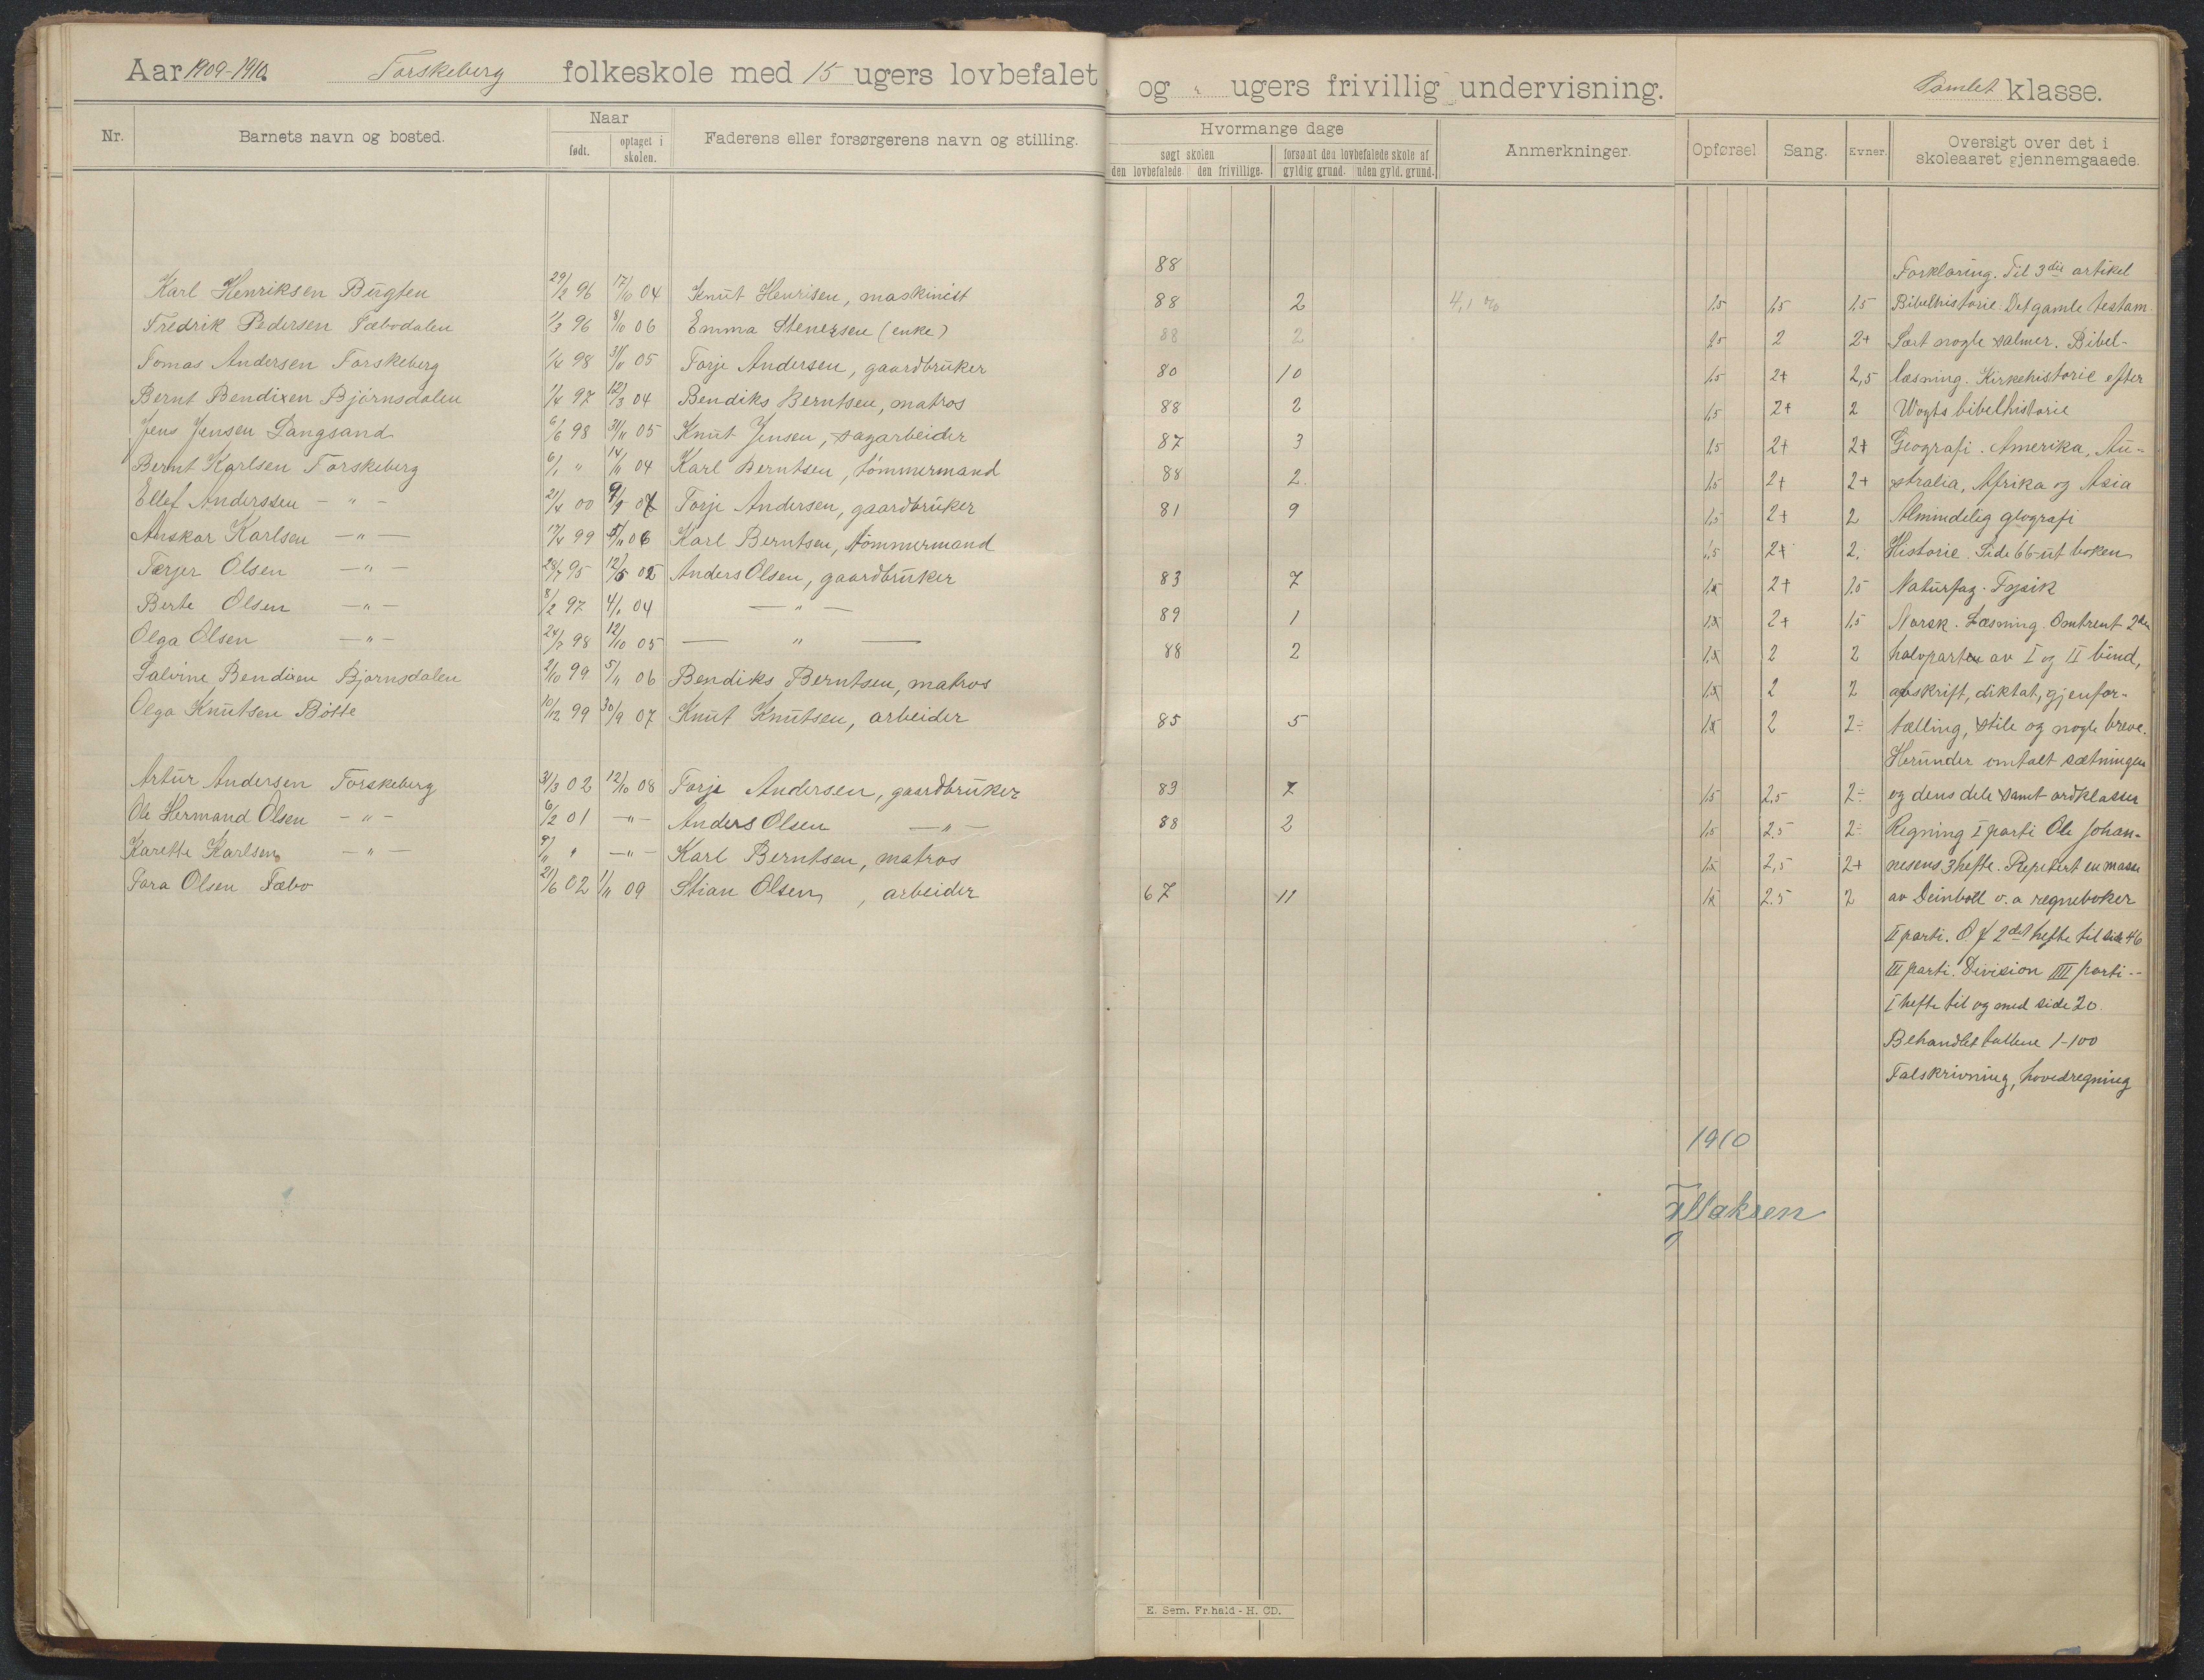 Aar 1909-1910. Torskeberg folkeskole med 15 ugers lovbefalet og " ugers frivillig undervisning. Samlet klasse.
Nr. Barnets navn og bosted. Naar født. optaget i skolen. Faderens eller forsørgerens navn og stilling.
Hvormange dage
søgt skolen forsømt den lovbefalede skole af
den lovbefalede. den frivillige. gyldig grund. uden gyld. grund.
Anmerkninger.
Opførsel. Sang. Evner.
Oversigt over det i
skoleaaret gjennemgaaede.
Karl Henriksen Bugten 29/2 96 17/10 04 Knut Henrisen, maskinist
Fredrik Pedersen Fæbodalen 1/3 96 8/10 06 Emma Stenersen (enke)
Tomas Andersen Torskeberg 1/4 98 31/11 05 Torje Andersen, gaardbruker
Bernt Bendixen Bjørnsdalen 1/4 97 12/3 04 Bendiks Berntsen, matros
Jens Jensen Langsand 6/6 98 31/11 05 Knut Jensen, sagarbeider
Bernt Karlsen Torskeberg 6/1 " 14/11 04 Karl Berntsen, tømmermand
Ellef Anderssen - " - 21/4 00 9/9 07 Torje Andersen, gaardbruker
Anskar Karlsen - " - 17/4 99 5/11 06 Karl Berntsen, tømmermand
Terjer Olsen - " - 28/7 95 12/5 02 Anders Olsen, gaardbruker
Berte Olsen - " - 8/2 97 4/1 04 - " -
Olga Olsen - " - 24/7 98 12/10 05 - " -
Salvine Bendixen Bjørnsdalen 2/10 99 5/11 06 Bendiks Berntsen, matros
Olga Knutsen Bøtte 10/12 99 30/9 07 Knut Knutsen, arbeider
Artur Andersen Torskeberg 31/3 02 12/10 08 Torje Andersen, gaardbruker
Ole Hermand Olsen - " - 6/2 01 - " - Anders Olsen - " -
Karette Karlsen - " - 9/11 " - " - Karl Berntsen, matros
Tara Olsen Fæbo 21/6 02 1/11 09 Stian Olsen, arbeider
88
88 2 4,1 %
88 2
80 10
88 2
87 3
88 2
81 9
83 7
89 1
88 2
85 5
83 7
88 2
67 11
Forklaring. Til 3die artikel
1,5 1,5 1,5 Bibelhistorie. Det gamle testam.
2,5 2 2+ Lært nogle salmer. Bibel-
1,5 2+ 2,5 læsning. Kirkehistorie efter
1,5 2+ 2 Vogts bibelhistorie
1,5 2+ 2+ Geografi. Amerika, Au-
1,5 2+ 2+ stralia, Afrika og Asia
1,5 2+ 2 Almindelig geografi
1,5 2+ 2. Historie. Side 66-ut boken
1,5 2+ 1,5 Naturfag. Fysik
1,5 2+ 1,5 Norsk. Læsning. Omtrent 2den
1,5 2 2 halvparten av I og II bind,
1,5 2 2 avskrift, diktat, gjenfor-
1,5 2 2÷ tælling, stile og nogle breve.
Herunder omtalt sætningen
1,5 2,5 2÷ og dens dele samt ordklasser
1,5 2,5 2÷ Regning I parti Ole Johan-
1,5 2,5 2+ nesens 3 hefte. Repetert en masse
1,5 2.5 2 av Deinboll o.a regneboker
II parti. O. J 2det hefte til side 46
III parti. Division IIII parti -
I hefte til og med side 20.
Behandlet tallene 1-100
Talskrivning, hovedregning
1910
Tellaksen
E. Sem. Fr.hald - H. CD.